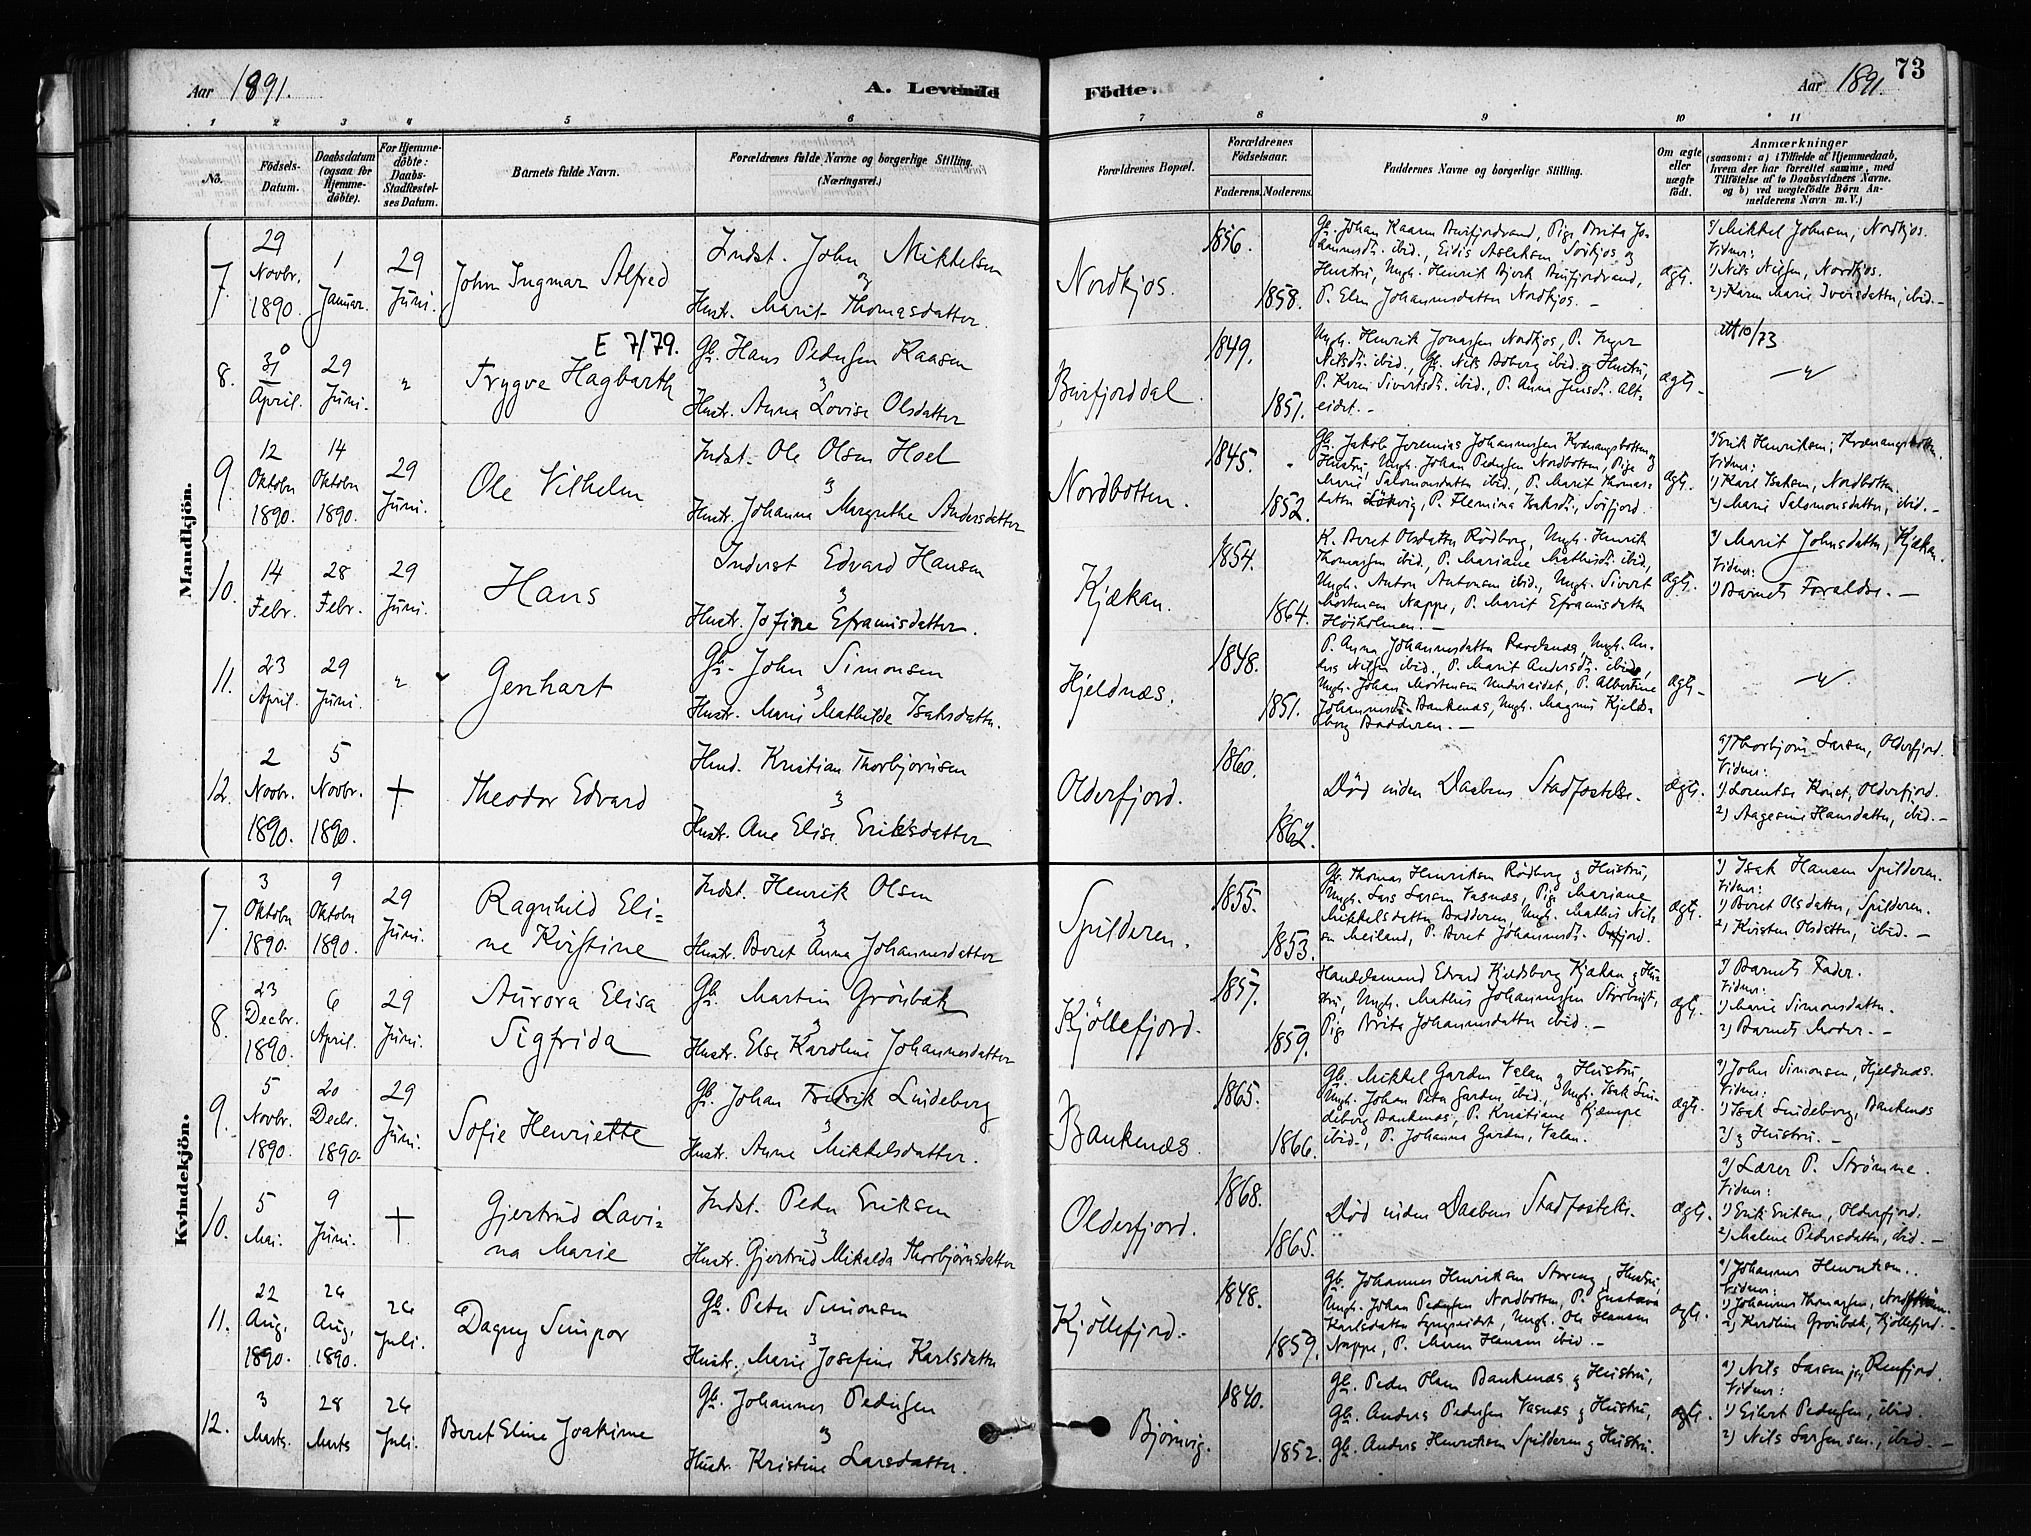 Aar 1891. A. Levende Födte. Aar 1891. 73
1 2 3 4 5 6 7 8 9 10 11
No. Födsels-Datum. Daabsdatum (ogsaa for Hjemmedöbte). For Hjemmedöbte: Daabs-Stadfæstelses Datum. Barnets fulde Navn. Forældrenes fulde Navne og borgerlige Stilling. (Næringsvei.) Forældrenes Bopæl. Forældrenes Födselsaar. Faderens. Moderens. Faddernes Navne og borgerlige Stilling. Om ægte eller uægte födt. Anmærkninger (saasom: a) i Tilfælde af Hjemmedaab, hvem der har forrettet samme, med Tilföielse af to Daabsvidners Navne, og b) ved uægtefödte Börn Anmelderens Navn m. V.)
Mandkjön.
7. 29 Novbr. 1890. 1 Januar. 29 Juni. John Ingmar Alfred
Indst. John Mikkelsen
og
Hustr. Marit Thomasdatter.
Nordkjos. 1856. 1858.
P. Elen Johannesdatter Nordkjos. –
ægte.
a) Mikkel Johnsen, Nordkjos.
Vidner:
1) Nils Nilsen, Nordkjos.
2) Karen Marie Iversdatter, ibid. –
8. 31 April. 29 Juni. " E 7/79. Trygve Hagbarth
Gb. Hans Pedersen Kaasen
og
Hustr. Anna Lovise Olsdatter
Burfjorddal. 1849. 1851.
Ungk. Henrik Jonassen Nordkjos, P. Inger
Nilsdtr. ibid., Gb. Nils Boberg ibid. og Hustru,
P. Karen Sivertsdtr. ibid., P. Anna Jensdtr. Alt-
eidet. –
ægte.
att 10/73
9. 12 Oktober 1890. 14 Oktober 1890. 29 Juni. Ole Vilhelm
Indst. Ole Olsen Hoel
og
Hustr. Johanna Margrethe Andersdatter
Nordbotten. 1845. 1852.
Gb. Jakob Jeremias Johannessen Kvænangsbotten og
Hustru, Ungk. Johan Pedersen Nordbotten, Pige
Marie Salomonsdatter ibid., P. Marit Thomas-
datter Lökvig, P. Flemina Isaksdtr., Sörfjord.
ægte.
a) Erik Henriksen, Kvænangsbotten.
Vidner:
1) Karl Isaksen, Nordbotten.
2) Marie Salomonsdatter, ibid. –
10. 14 Febr. 28 Febr. 29 Juni. Hans
Inderst Edvard Hansen
og
Hustr. Josine Eframsdatter.
Kjækan. 1854. 1864.
K. Beret Olsdatter Rødberg, Ungk. Henrik
Thomassen ibid., P. Mariane Mathisdtr. ibid,
Ungk. Anton Antonsen ibid., Ungk. Sivert
Mortensen Nappe, P. Marit Eframsdatter
Højholmen. –
ægte.
a) Marit Johnsdatter, Kjækan.
Vidner:
1) Barnets Forældre. –
11. 23 April. 29 Juni. " Genhart
Gb. John Simonsen
og
Hustr. Marie Mathilde Isaksdatter.
Hjeldnæs. 1848. 1851.
P. Anna Johannesdatter Ravelsnæs, Ungk. An-
ders Nilsen ibid., P. Marit Andersdtr. ibid.,
Ungk. Johan Mortensen Undereidet, P. Albertine
Johannesdtr. Bankenæs, Ungk. Magnus Kjelds-
berg Badderen. –
ægte.
12. 2 Novbr. 1890. 5 Novbr. 1890. + Theodor Edvard
Hmd. Kristian Thorbjörnsen
og
Hustr. Ane Elise Eriksdatter
Olderfjord. 1860. 1862.
Död inden Daabens Stadfæstelse.
ægte.
a) Thorbjörn Larsen, Olderfjord.
Vidner:
1) Lorentse Konst, Olderfjord.
2) Aagesine Hansdatter, ibid. –
Kvindekjön.
7. 3 Oktober 1890. 9 Oktober 1890. 29 Juni. Ragnhild Eli=
ne Kirstine
Indst. Henrik Olsen
og
Hustr. Beret Anna Johannesdatter
Spilderen. 1855. 1853.
Gb. Thomas Henriksen Rødberg og Hustru,
Ungk. Lars Larsen Vasnæs, Pige Mariane
Mikkelsdatter Badderen, Ungk. Mathis Nil-
sen Meiland, P. Beret Johannesdtr.
ægte.
a) Isak Hansen Spilderen.
Vidner:
1) Beret Olsdatter, Spilderen.
2) Kirsten Olsdatter, ibid. –
8. 23 Decbr. 1890. 6 April. 29 Juni. Aurora Elisa
Sigfrida
Gb. Martin Grönbæk
og
Hustr. Else Karoline Johannesdatter
Kjöllefjord. 1857. 1859.
Handelsmand Edvard Kjeldsberg Kjækan og Hus-
tru, Ungk. Mathis Johannessen Storbugt,
Pige Brita Johannesdatter ibid. –
ægte.
a) Barnets Fader.
Vidner:
1) Marie Simonsdatter.
2) Barnets Moder. –
9. 5 Novbr. 1890. 20 Decbr. 1890. 29 Juni. Sofie Henriette
Gb. Johan Fredrik Lindeberg
og
Hustr. Anne Mikkelsdatter.
Bankenæs. 1865. 1866.
Gb. Mikkel Garden Valan og Hustru,
Ungk. Johan Peter Garden ibid., Ungk. Isak Lin-
deberg Bankenæs, P. Kristiane Kjæmpe
ibid., P. Johanna Garden, Valan.
ægte.
a) John Simonsen, Hjeldnæs.
Vidner:
1) Isak Lindeberg, Bankenæs
2) og Hustru. –
10. 5 Mai. 9 Juni. + Gjertrud Lavi=
na Marie
Indst. Peder Eriksen
og
Hustr. Gjertrud Mikalda Thorbjörnsdatter
Olderfjord. 1868. 1865.
Död inden Daabens Stadfæstelse.
ægte.
a) Lærer P. Strømme.
Vidner:
1) Erik Eriksen, Olderfjord.
2) Malene Pedersdatter, ibid. –
11. 22 Aug. 1890. 26 Aug. 1890. 26 Juli. Dagny Simpor
Gb. Peter Simonsen
og
Hustr. Marie Josefine Karlsdatter
Kjöllefjord. 1848. 1859.
Gb. Johannes Henriksen Storeng og Hustru,
Ungk. Johan Pedersen Nordbotten, P. Gustava
Karlsdatter Lyngseidet, Ungk. Ole Hansen
Nappe, P. Maren Hansen ibid. –
ægte.
a) Johannes Henriksen.
Vidner:
1) Johannes Thomassen, Nordbotten.
2) Karoline Grönbæk, Kjöllefjord. –
12. 3 Marts. 28 Marts 26 Juli. Beret Eline Joakime
Gb. Johannes Pedersen
og
Hustr. Kristine Larsdatter.
Bjørnvig. 1840. 1852.
Gb. Peder Olsen Bankenæs og Hustru,
Gb. Anders Pedersen Vasnæs og Hustru,
Gb. Anders Henriksen Spilderen og Hustru.
ægte.
a) Nils Larsen, Renfjord.
Vidner:
1) Eilert Pedersen, ibid.
2) Nils Larsensen, ibid. –